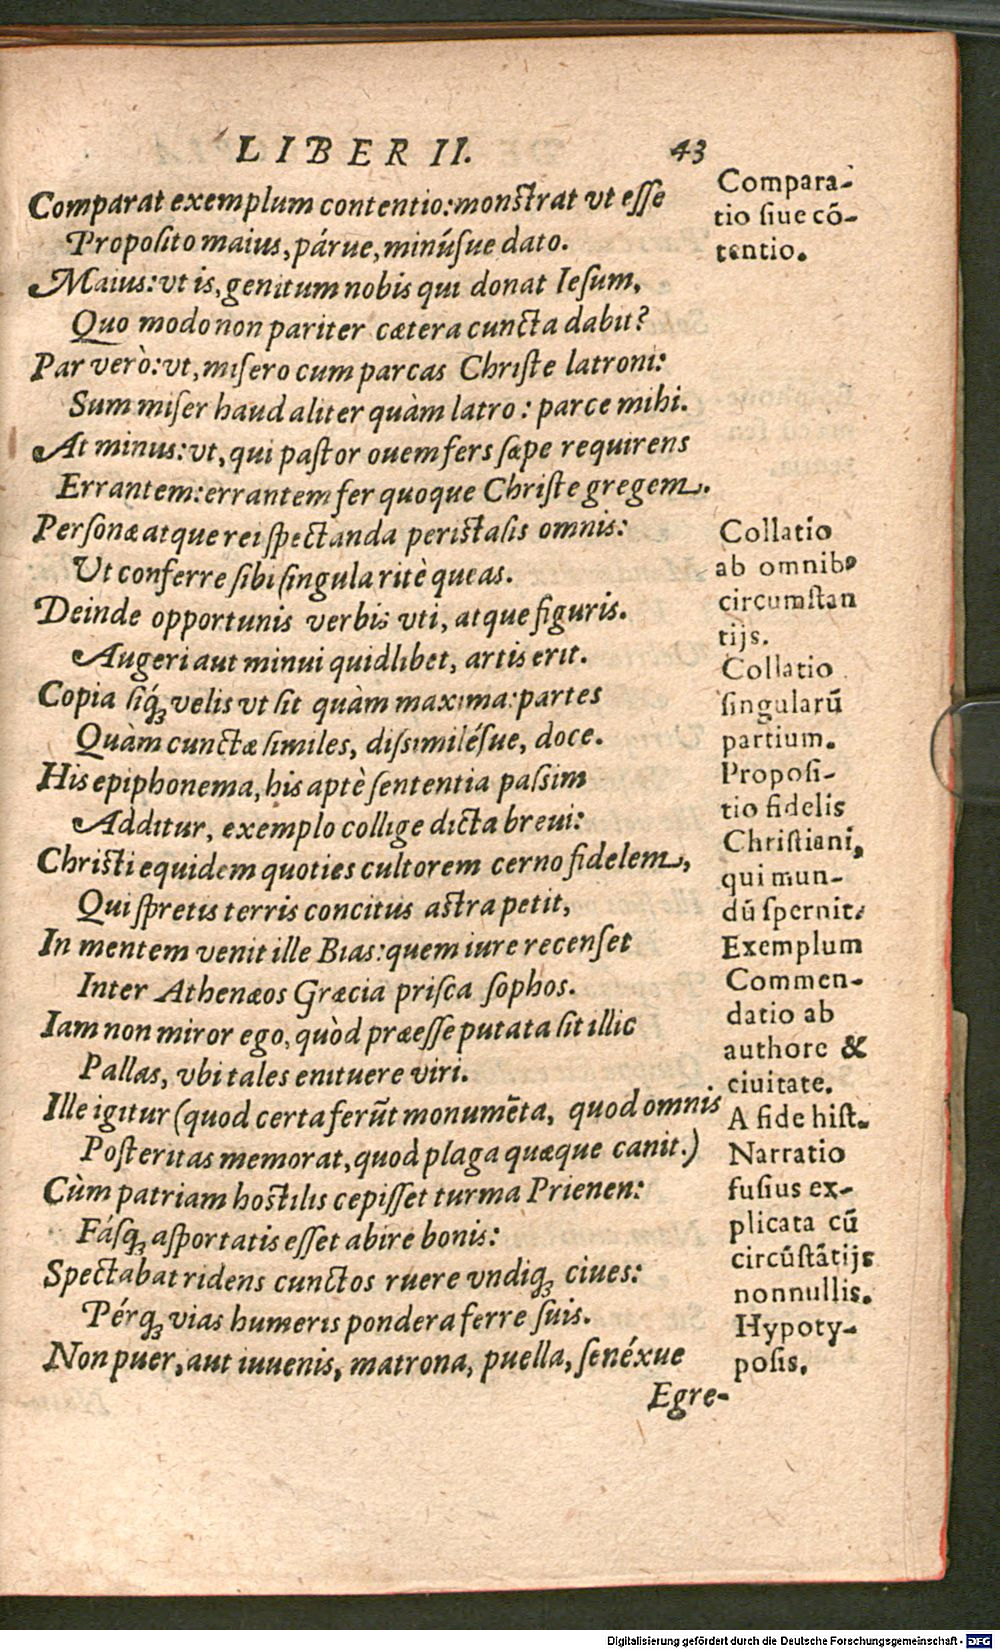 LIBER II. 43
Comparat exemplum contentio: monstrat vt esse
Proposito maius, párue, minúsue dato.
Maius: vt is, genitum nobis qui donat Iesum,
Quo modo non pariter cætera cuncta dabit?
Par verò: vt, misero cum parcas Christe latroni:
Sum miser haud aliter quàm latro: parce mihi.
At minus: vt, qui pastor ouem fers sæpe requirens
Errantem: errantem fer quoque Christe gregem.
Personæ atque rei spectanda peristasis omnis:
Vt conferre sibi singula ritè queas.
Deinde opportunis verbis vti, atque figuris.
Augeri aut minui quidlibet, artis erit.
Copia siq́ꝫ velis vt sit quàm maxima: partes
Quàm cunctæ similes, dissimilésue, doce.
His epiphonema, his aptè sententia passim
Additur, exemplo collige dicta breui:
Christi equidem quoties cultorem cerno fidelem,
Qui spretis terris concitus astra petit,
In mentem venit ille Bias: quem iure recenset
Inter Athenæos Græcia prisca sophos.
Iam non miror ego, quòd præesse putata sit illic
Pallas, vbi tales enituere viri.
Ille igitur (quod certa ferūt monumēta, quod omnis
Posteritas memorat, quod plaga quæque canit.)
Cùm patriam hostilis cepisset turma Prienen:
Fásqꝫ asportatis esset abire bonis:
Spectabat ridens cunctos ruere vndiqꝫ ciues:
Pérqꝫ vias humeris pondera ferre suis.
Non puer, aut iuuenis, matrona, puella, senéxue
Egre-
Compara-
tio siue cō-
tentio.
Collatio
ab omnibꝰ
circumstan
tijs.
Collatio
singularū
partium.
Proposi-
tio fidelis
Christiani,
qui mun-
dū spernit.
Exemplum
Commen-
datio ab
authore &
ciuitate.
A fide hist.
Narratio
fusius ex-
plicata cū
circūstātijs
nonnullis.
Hypoty-
posis.
Digitalisierung gefördert durch die Deutsche Forschungsgemeinschaft - DFG